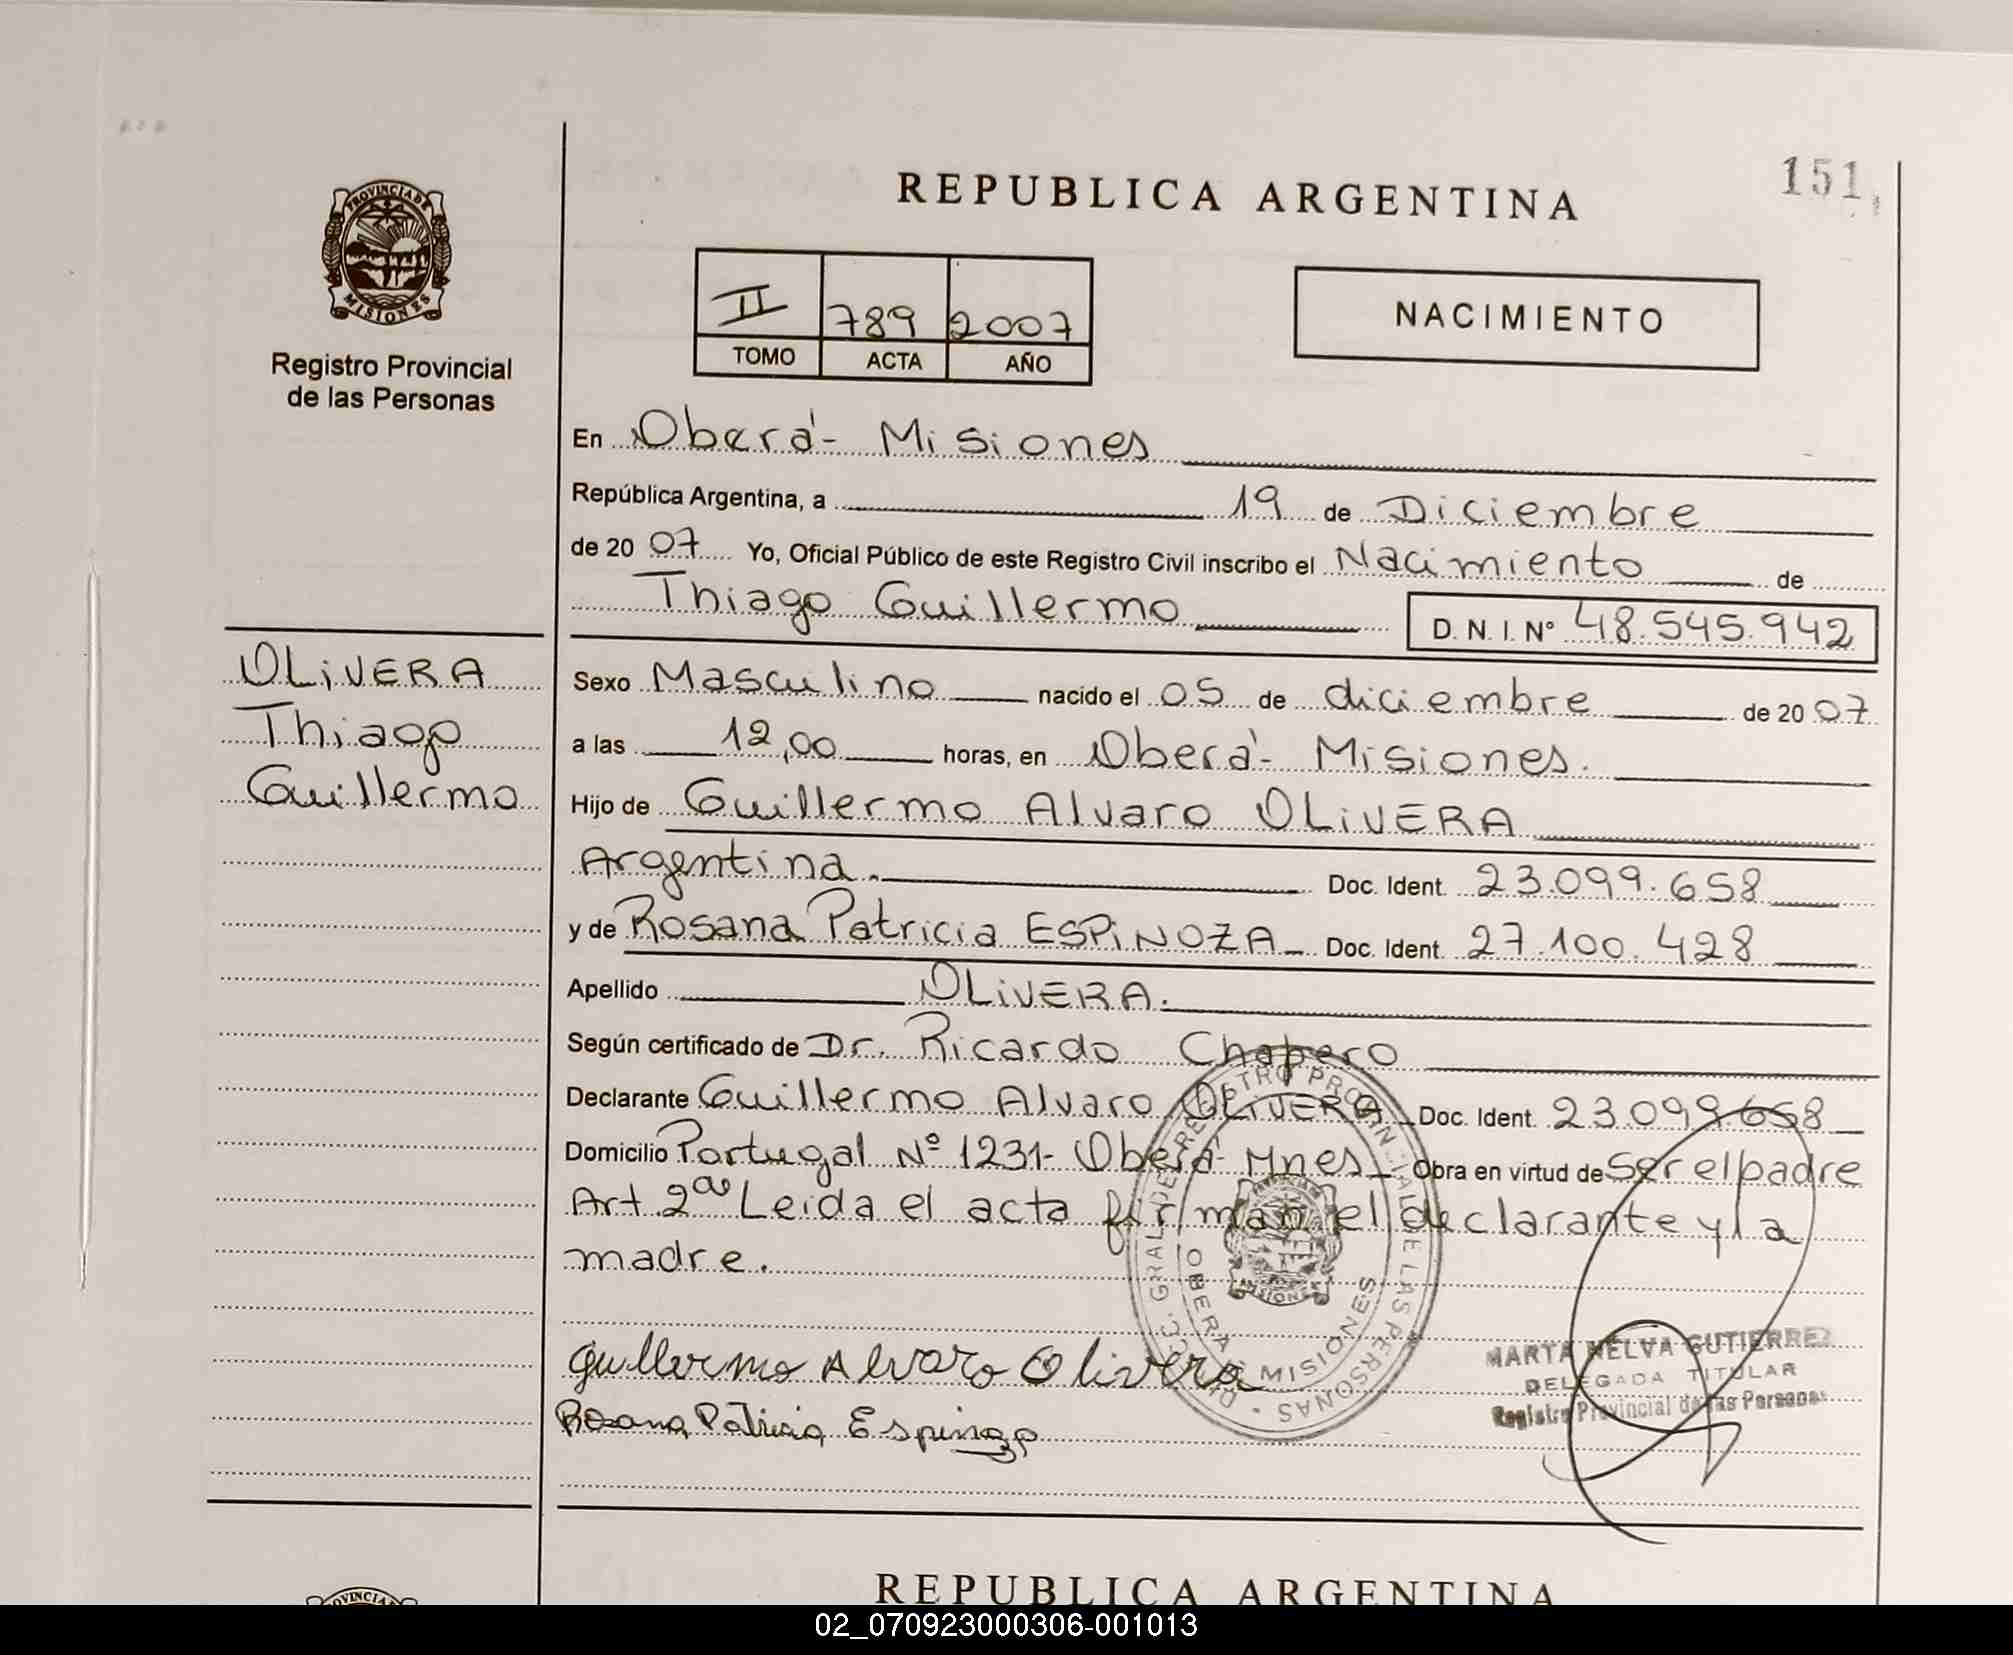 REPUBLICA ARGENTINA
151
PROVINCIA DE
MISIONES
Registro Provincial
de las Personas
II 789 2007
TOMO ACTA AÑO
NACIMIENTO
En Oberá - Misiones
República Argentina, a 19 de Diciembre
de 20 07 Yo, Oficial Público de este Registro Civil inscribo el Nacimiento de
Thiago Guillermo D.N.I. Nº 48.545.942
OLiVERA
Thiago
Guillermo
Sexo Masculino nacido el 05 de diciembre de 20 07
a las 12,00 horas, en Oberá - Misiones.
Hijo de Guillermo Alvaro OLiVERA
Argentina. Doc. Ident. 23.099.658
y de Rosana Patricia ESPiNOZA Doc. Ident. 27.100.428
Apellido OLiVERA.
Según certificado de Dr. Ricardo Chapero
Declarante Guillermo Alvaro OLiVERA Doc. Ident. 23.099.658
Domicilio Portugal Nº 1231- Oberá - Mnes Obra en virtud de Ser el padre
Art. 2º Leida el acta firman el declarante y la
madre.
Guillermo Alvaro Olivera
Rosana Patricia Espinoza
OBERA MISIONES
MISIONES
MARTA NELVA GUTIERREZ
DELEGADA TITULAR
Registro Provincial de las Personas
REPUBLICA ARGENTINA
02_070923000306-001013